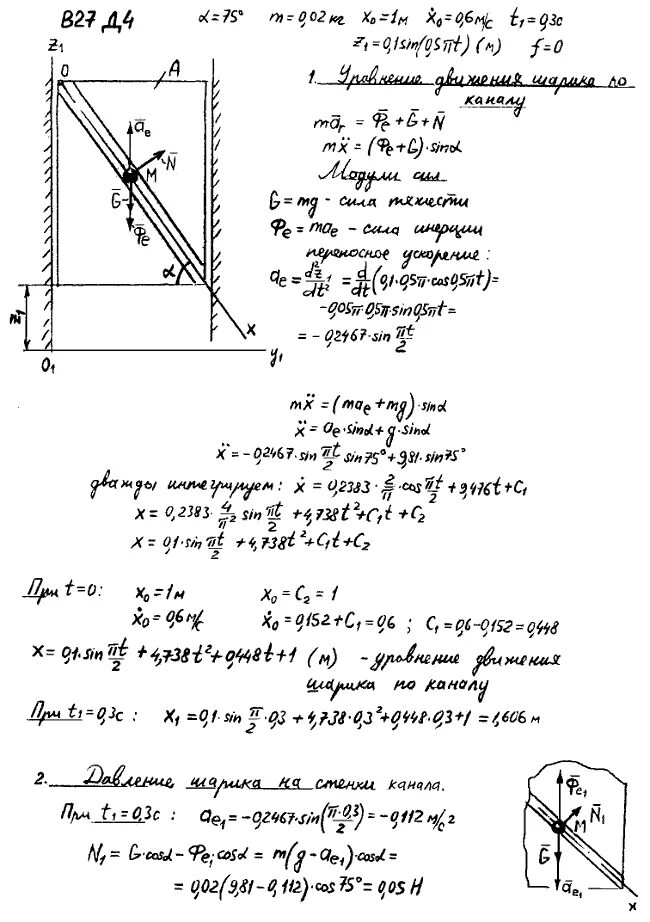 В27 Д4
α=75° m=0,02кг x₀=1м ẋ₀=0,6м/с t₁=0,3с
z₁=0,1sin(0,5πt) (м) f=0
z₁
O
A
āe
N̄
M
Ḡ
Φ̄e
α
z₁
x
O₁
y₁
1. Уравнение движения шарика по
каналу
mār = Φ̄e+Ḡ+N̄
mẍ=(Φe+G)·sinα
Модули сил
G=mg - сила тяжести
Φe=mae - сила инерции
переносное ускорение:
ae=d²z₁/dt²=d/dt(0,1·0,5π·cos0,5πt)=
-0,05π·0,5π·sin0,5πt=
=-0,2467·sin πt/2
mẍ=(mae+mg)·sinα
ẍ=ae·sinα+g·sinα
ẍ=-0,2467·sin πt/2 sin75°+9,81·sin75°
дважды интегрируем: ẋ=0,2383·2/π·cos πt/2+9,476t+C₁
x=0,2383·4/π² sin πt/2 +4,738t²+C₁t+C₂
x=0,1·sin πt/2 +4,738t²+C₁t+C₂
При t=0: x₀=1м x₀=C₂=1
ẋ₀=0,6м/с ẋ₀=0,152+C₁=0,6 ; C₁=0,6-0,152=0,448
x=0,1·sin πt/2 +4,738t²+0,448t+1 (м) - уравнение движения
шарика по каналу
При t₁=0,3с: x₁=0,1·sin π/2·0,3+4,738·0,3²+0,448·0,3+1=1,606м
2. Давление шарика на стенки канала.
При t₁=0,3с: ae₁=-0,2467·sin(π·0,3/2)=-0,112 м/с²
N₁=G·cosα-Φe₁cosα=m(g-ae₁)·cosα=
=0,02(9,81-0,112)·cos75°=0,05 Н
Φ̄e₁
N̄₁
M
Ḡ
āe₁
x